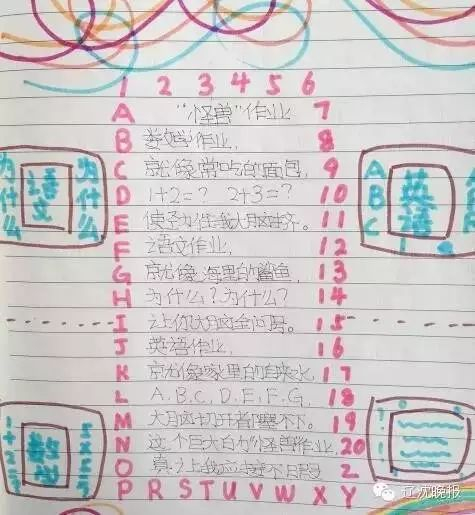 1 2 3 4 5 6
A "怪兽"作业 7
B 数学作业, 8
C 就像常吃的面包, 9
D 1+2=? 2+3=? 10
E 使劲往我 挤。 11
F 语文作业, 12
G 就像海里的鲨鱼, 13
H 为什么?为什么? 14
I 让你大脑全问号。 15
J 英语作业, 16
K 就像家里的自来水, 17
L A、B、C、D、E、F、G、 18
M 大脑切开都塞不下。 19
N 这个巨大的"怪兽作业, 20
O 真让我应接不暇 2
P R S T U V W X Y
为什么
语文
为什么
A B C
英语
数学
辽沈晚报